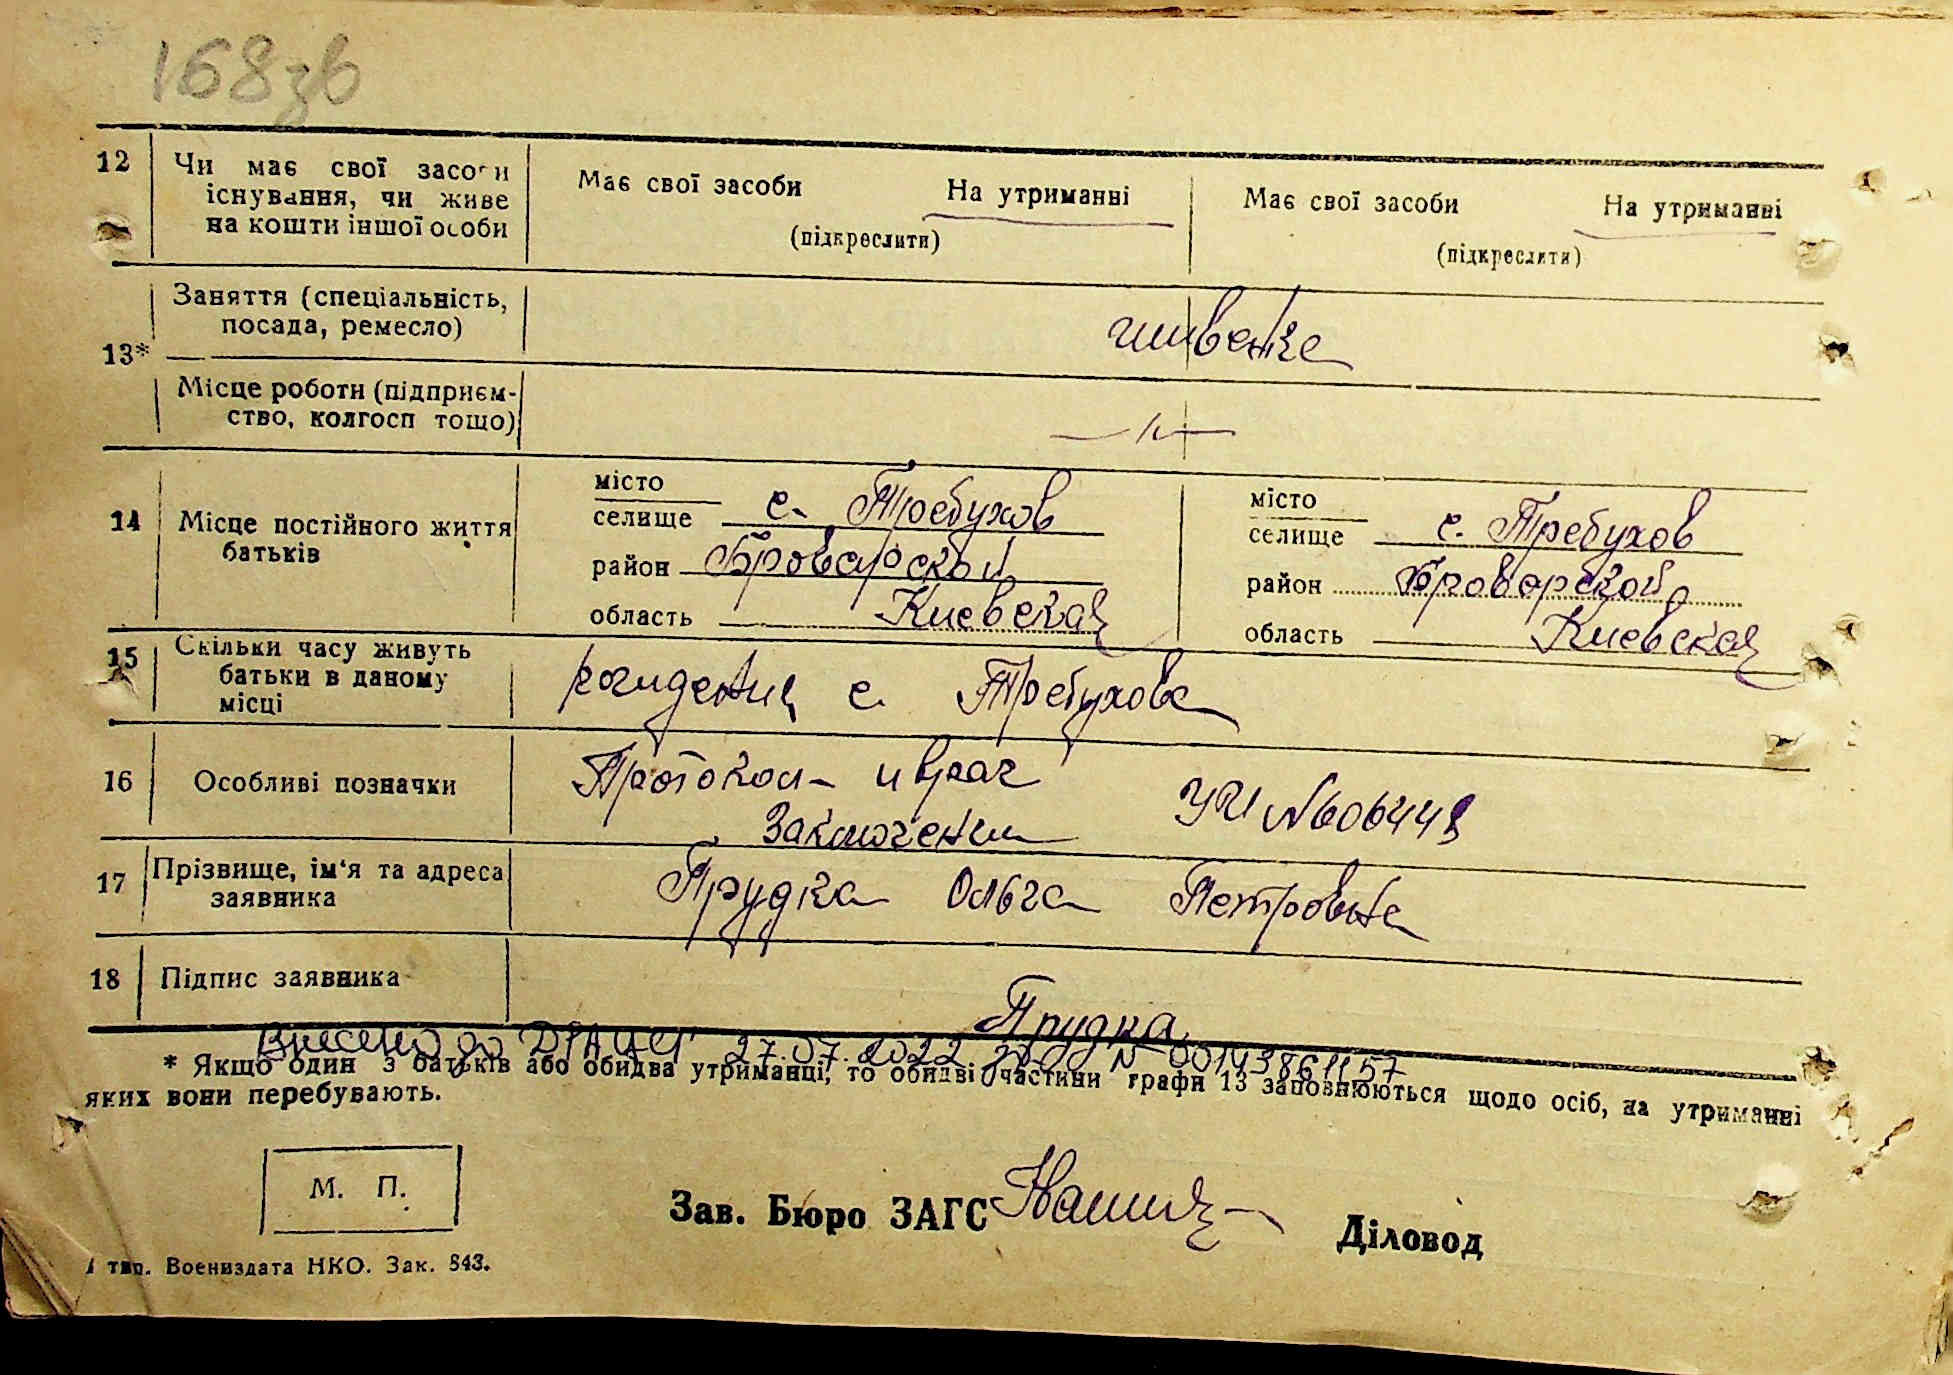 168зв
12 Чи має свої засоби існування, чи живе на кошти іншої особи
Має свої засоби На утриманні
(підкреслити)
Має свої засоби На утриманні
(підкреслити)
13* Заняття (спеціальність, посада, ремесло)
Місце роботи (підприємство, колгосп тощо)
— " —
14 Місце постійного життя батьків
місто
селище с. Требухов
район Броварской
область Киевская
місто
селище с. Требухов
район Броварской
область Киевская
15 Скільки часу живуть батьки в даному місці
с. Требухова
16 Особливі позначки
Протокол и врач
Заключении
УЧ №
17 Прізвище, ім'я та адреса заявника
Прудка Ольга Петровна
18 Підпис заявника
Прудка
Внесено до ДРАЦСГ 27.07.2022 за № 00143861157
* Якщо один з батьків або обидва утриманці, то обидві частини графи 13 заповнюються щодо осіб, на утриманні
яких вони перебувають.
М. П.
Зав. Бюро ЗАГС
Діловод
1 тип. Воениздата НКО. Зак. 843.